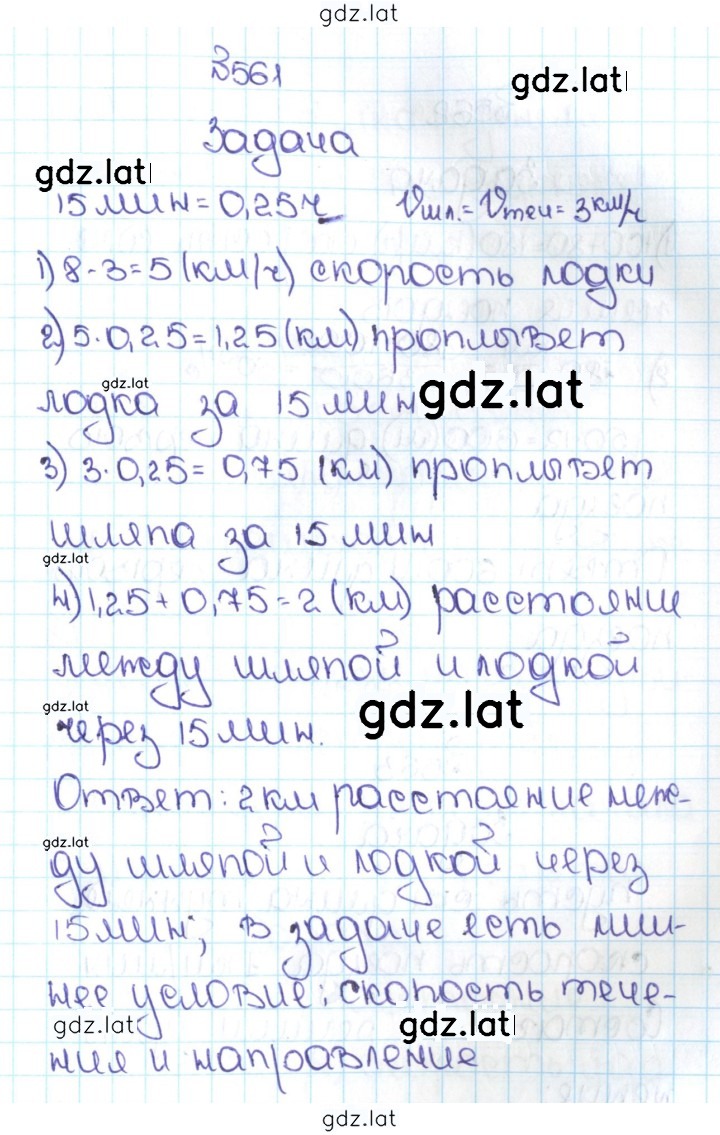 gdz.lat
№561
gdz.lat
Задача
gdz.lat
15 мин = 0,25ч Vшл. = Vтеч = 3 км/ч
1) 8 - 3 = 5 (км/ч) скорость лодки
2) 5 · 0,25 = 1,25 (км) проплывет
gdz.lat
лодка за 15 мин gdz.lat
3) 3 · 0,25 = 0,75 (км) проплывет
шляпа за 15 мин
gdz.lat
4) 1,25 + 0,75 = 2 (км) расстояние
между шляпой и лодкой
gdz.lat
через 15 мин. gdz.lat
Ответ: 2 км расстаяние меж-
gdz.lat
ду шляпой и лодкой через
15 мин; в задаче есть лиш-
нее условие: скорость тече-
gdz.lat gdz.lat
ния и направление
gdz.lat